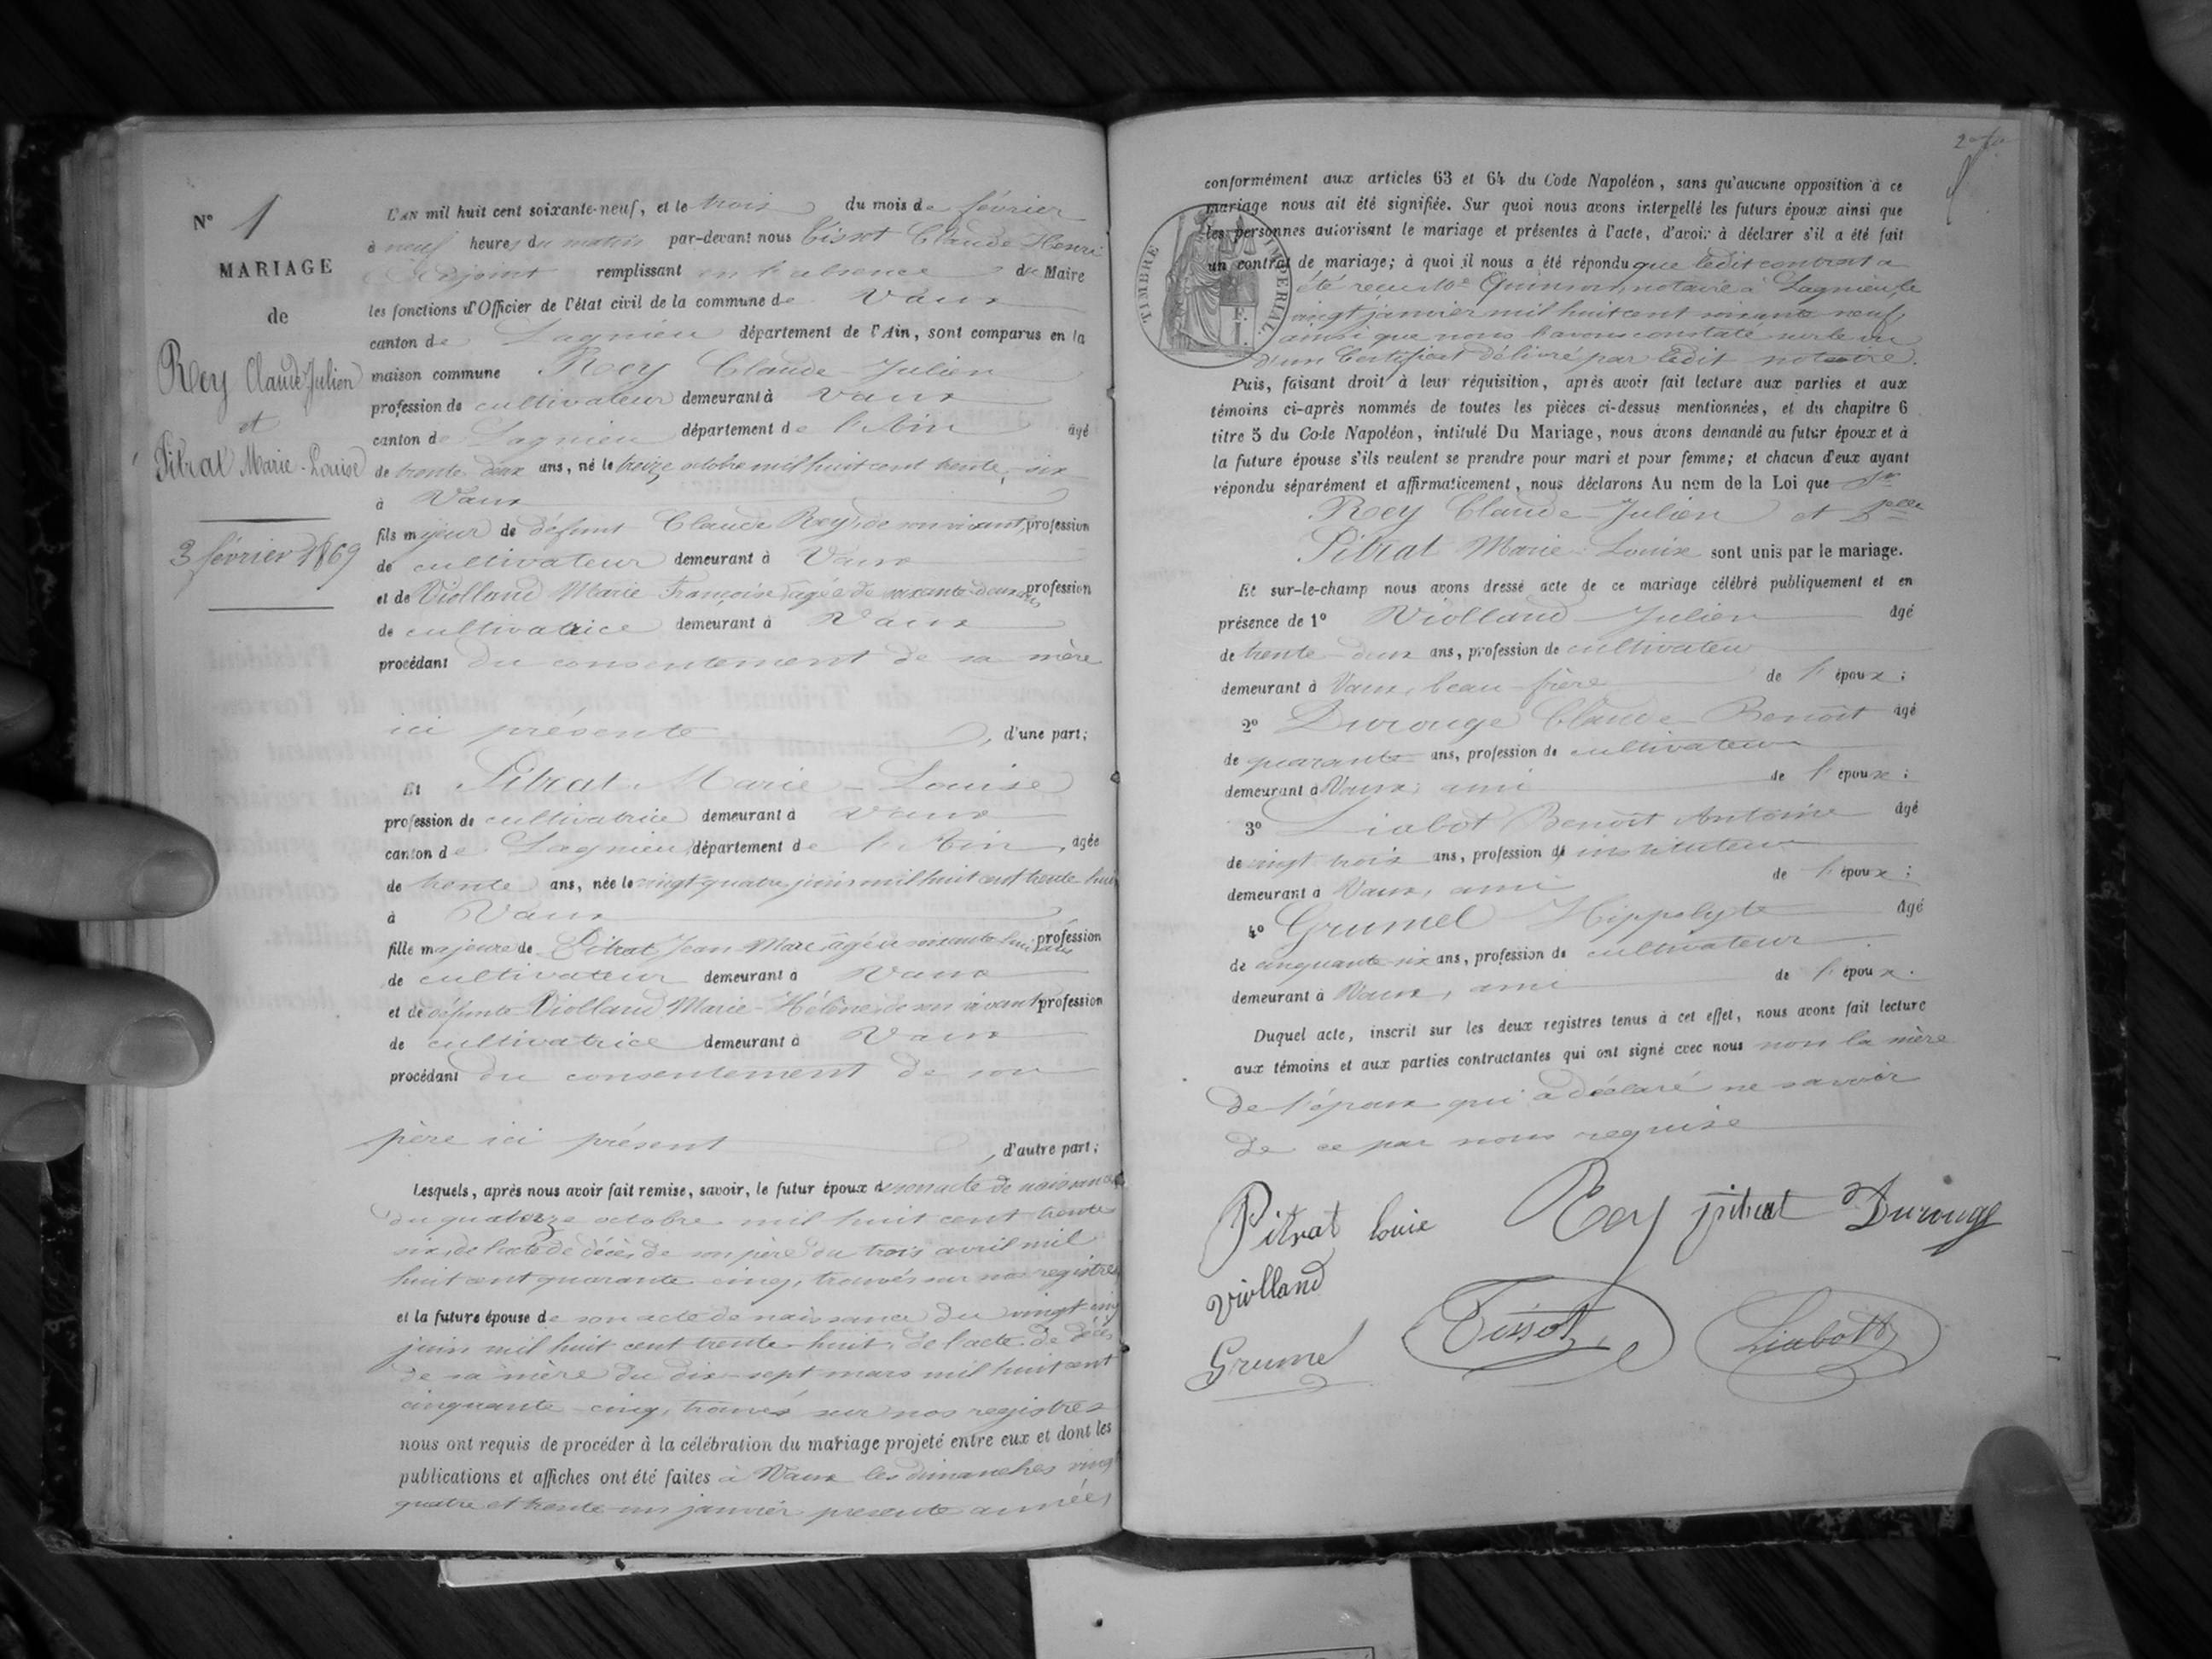 N° 1
MARIAGE
de
Rey Claude Julien
et
Pitrat Marie-Louise
3 février 1869
L'AN mil huit cent soixante-neuf, et le trois du mois de février
à neuf heures du matin par-devant nous Tissot Claude Henri
Adjoint remplissant en l'absence du Maire
les fonctions d'Officier de l'état civil de la commune de Vaux
canton de Lagnieu département de l'Ain, sont comparus en la
maison commune Rey Claude-Julien
profession de cultivateur demeurant à Vaux
canton de Lagnieu département de l'Ain âgé
de trente-deux ans, né le treize octobre mil huit cent trente-six
à Vaux
fils majeur de défunt Claude Rey, de son vivant, profession
de cultivateur demeurant à Vaux
et de Violland Marie Françoise, âgée de soixante-deux ans profession
de cultivatrice demeurant à Vaux
procédant du consentement de sa mère
ici présente, d'une part;
Et Pitrat Marie-Louise
profession de cultivatrice demeurant à Vaux
canton de Lagnieu, département de l'Ain, âgée
de trente ans, née le vingt-quatre juin mil huit cent trente huit
à Vaux
fille majeure de Pitrat Jean-Marie, âgé de soixante-huit ans profession
de cultivateur demeurant à Vaux
et de défunte Violland Marie-Hélène, de son vivant profession
de cultivatrice demeurant à Vaux
procédant du consentement de son
père ici présent, d'autre part;
Lesquels, après nous avoir fait remise, savoir, le futur époux de son acte de naissance
du quatorze octobre mil huit cent trente
six, de l'acte de décès de son père du trois avril mil
huit cent quarante-cinq, trouvés sur nos registres
et la future épouse de son acte de naissance du vingt-cinq
juin mil huit cent trente-huit, de l'acte de décès
de sa mère du dix-sept mars mil huit cent
cinquante-cinq, trouvés sur nos registres
nous ont requis de procéder à la célébration du mariage projeté entre eux et dont les
publications et affiches ont été faites à Vaux les dimanches vingt
quatre et trente-un janvier présente année,
conformément aux articles 63 et 64 du Code Napoléon, sans qu'aucune opposition à ce
mariage nous ait été signifiée. Sur quoi nous avons interpellé les futurs époux ainsi que
les personnes autorisant le mariage et présentes à l'acte, d'avoir à déclarer s'il a été fait
un contrat de mariage; à quoi il nous a été répondu que ledit contrat a
été reçu Me Quinson, notaire à Lagnieu, le
vingt janvier mil huit cent soixante neuf
ainsi que nous l'avons constaté sur le vu
d'un Certificat délivré par ledit notaire.
TIMBRE IMPÉRIAL
Puis, faisant droit à leur réquisition, après avoir fait lecture aux parties et aux
témoins ci-après nommés de toutes les pièces ci-dessus mentionnées, et du chapitre 6
titre 5 du Code Napoléon, intitulé Du Mariage, nous avons demandé au futur époux et à
la future épouse s'ils veulent se prendre pour mari et pour femme; et chacun d'eux ayant
répondu séparément et affirmativement, nous déclarons Au nom de la Loi que Sr
Rey Claude-Julien et Delle
Pitrat Marie-Louise sont unis par le mariage.
Et sur-le-champ nous avons dressé acte de ce mariage célébré publiquement et en
présence de 1° Violland Julien âgé
de trente-deux ans, profession de cultivateur
demeurant à Vaux, beau-frère de l'époux;
2° Durouge Claude Benoît âgé
de quarante ans, profession de cultivateur
demeurant à Vaux, ami de l'époux;
3° Liabot Benoît Antoine âgé
de vingt trois ans, profession d'instituteur
demeurant à Vaux, ami de l'époux;
4° Grumel Hippolyte âgé
de cinquante-six ans, profession de cultivateur
demeurant à Vaux, ami de l'époux.
Duquel acte, inscrit sur les deux registres tenus à cet effet, nous avons fait lecture
aux témoins et aux parties contractantes qui ont signé avec nous non la mère
de l'époux qui a déclaré ne savoir
de ce par nous requise
Pitrat louie Rey pitrat Durouge
violland
Tissot Liabot
Grumel